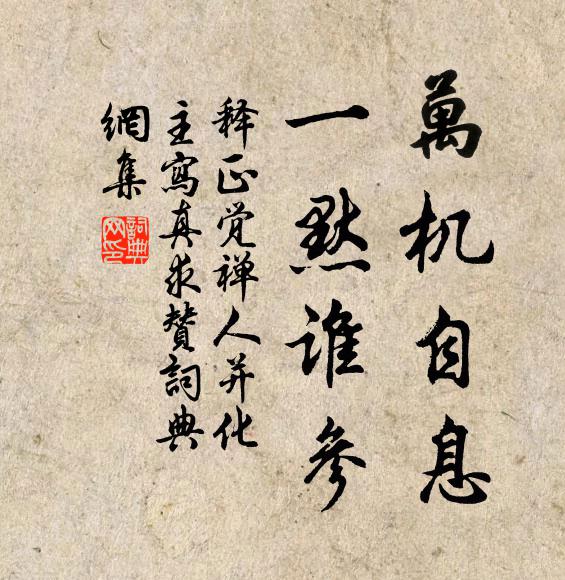 萬机自息
一默谁參
释正觉禅人并化
主寫真求賛詞典
網集
詞典网印